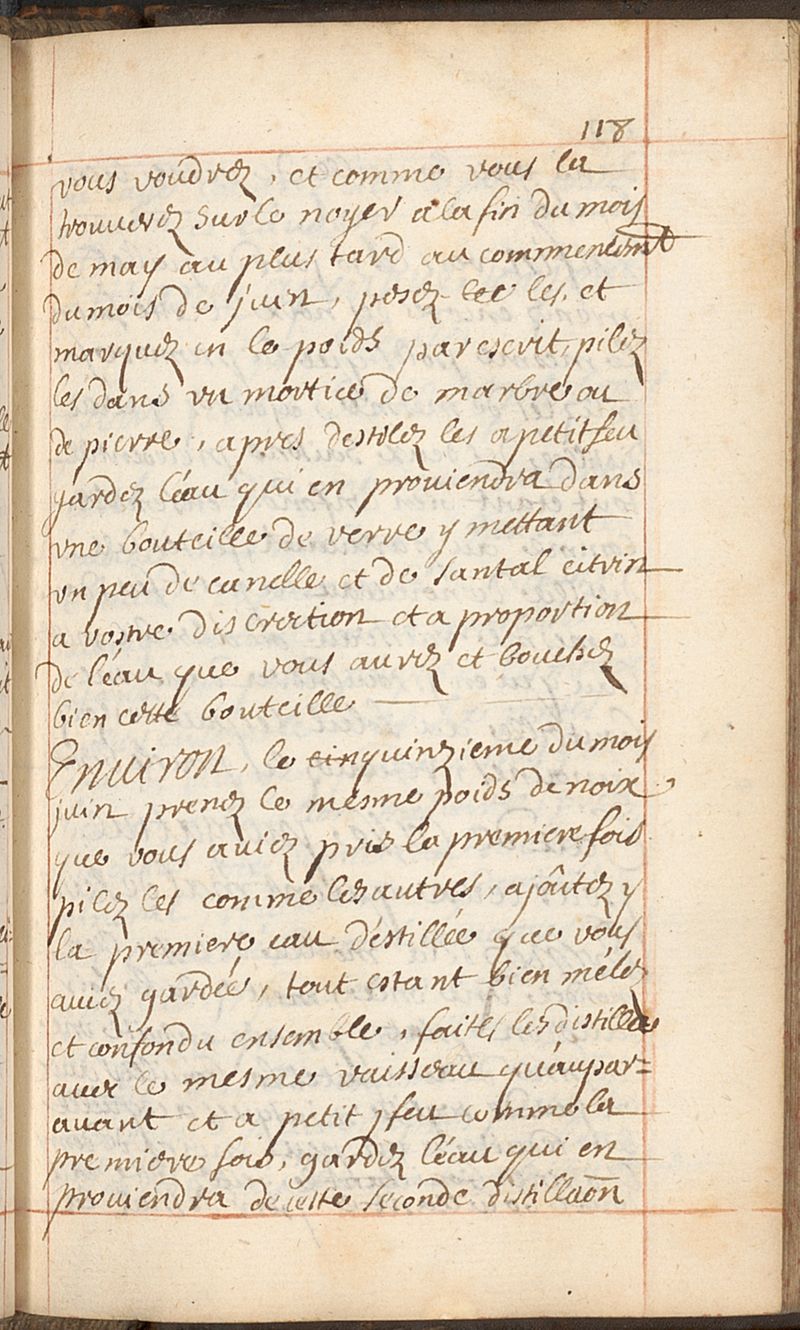 118
vous voudrez, et comme vous la
trouverez sur le noyer a la fin du mois
de may au plus tard au commencemt
du mois de juin, pesez les, et
marquez en le poids par escrit, pilez
les dans vn mortier de marbre ou
de pierre, apres destilez les a petit feu
gardez léau qui en prouiendra dans
vne bouteille de verre y mettant
vn peu de canelle et de santal citrin
a vostre discretion et a proportion
de léau que vous aurez et bouchez
bien cette bouteille
Enuiron, le cinquinzieme du mois
juin prenez le mesme poids de noix
que vous auiez pris la premiere fois
pilez les comme les autres, ajoûtez y
la premiere eau déstillée que vous
auiez gardée, tout estant bien mélez
et confondu ensemble, faites les distiller
auec le mesme vaisseau qu'aupar=
auant et a petit feu comme la
premiere fois, gardez léau qui en
prouiendra de cette seconde distillaon